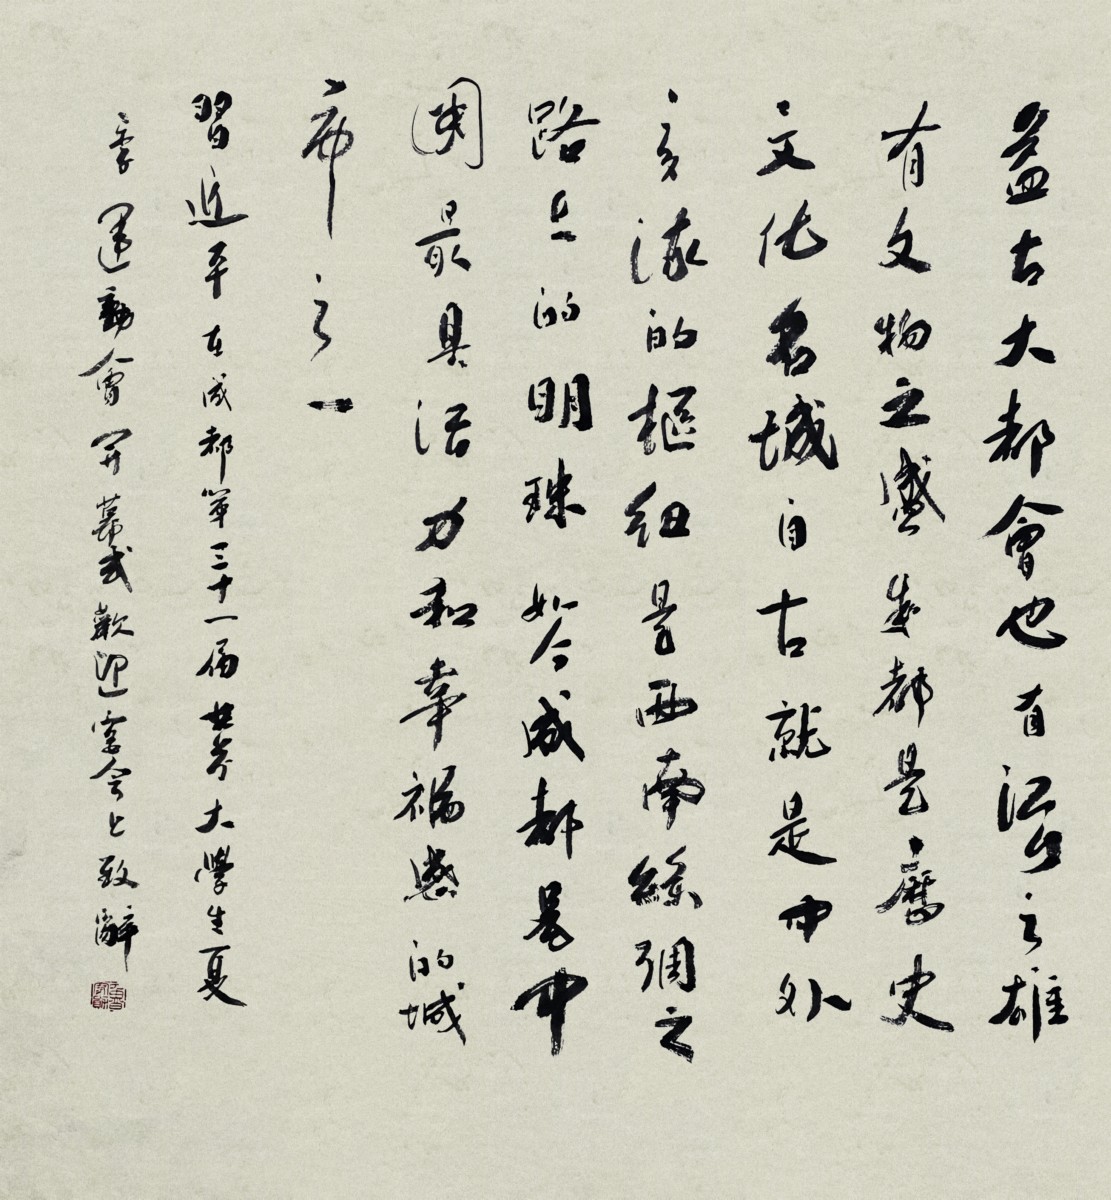 益古大都會也有江山之雄
有文物之盛成都是歷史
文化名城自古就是中外
交流的樞紐是西南絲綢之
路上的明珠如今成都是中
國最具活力和幸福感的城
市之一
習近平在成都第三十一届世界大學生夏
季運動會開幕式歡迎宴会上致辭